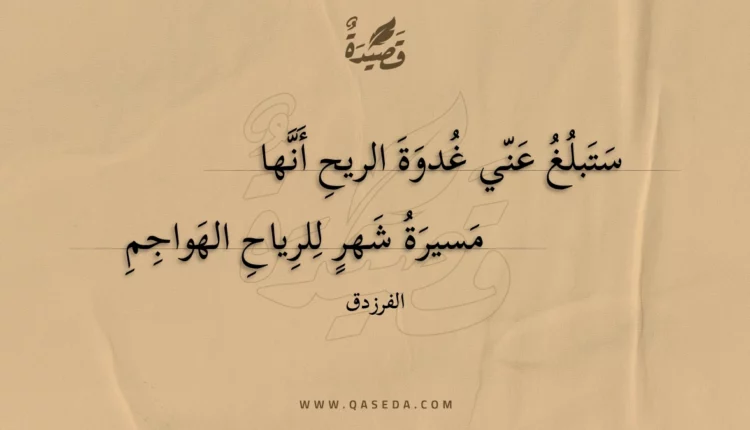 قَصِيدَةٌ
سَتَبلُغُ عَنّي غُدوَةَ الريحِ أَنَّها
مَسيرَةُ شَهرٍ لِلرِياحِ الهَواجِمِ
الفرزدق
WWW.QASEDA.COM